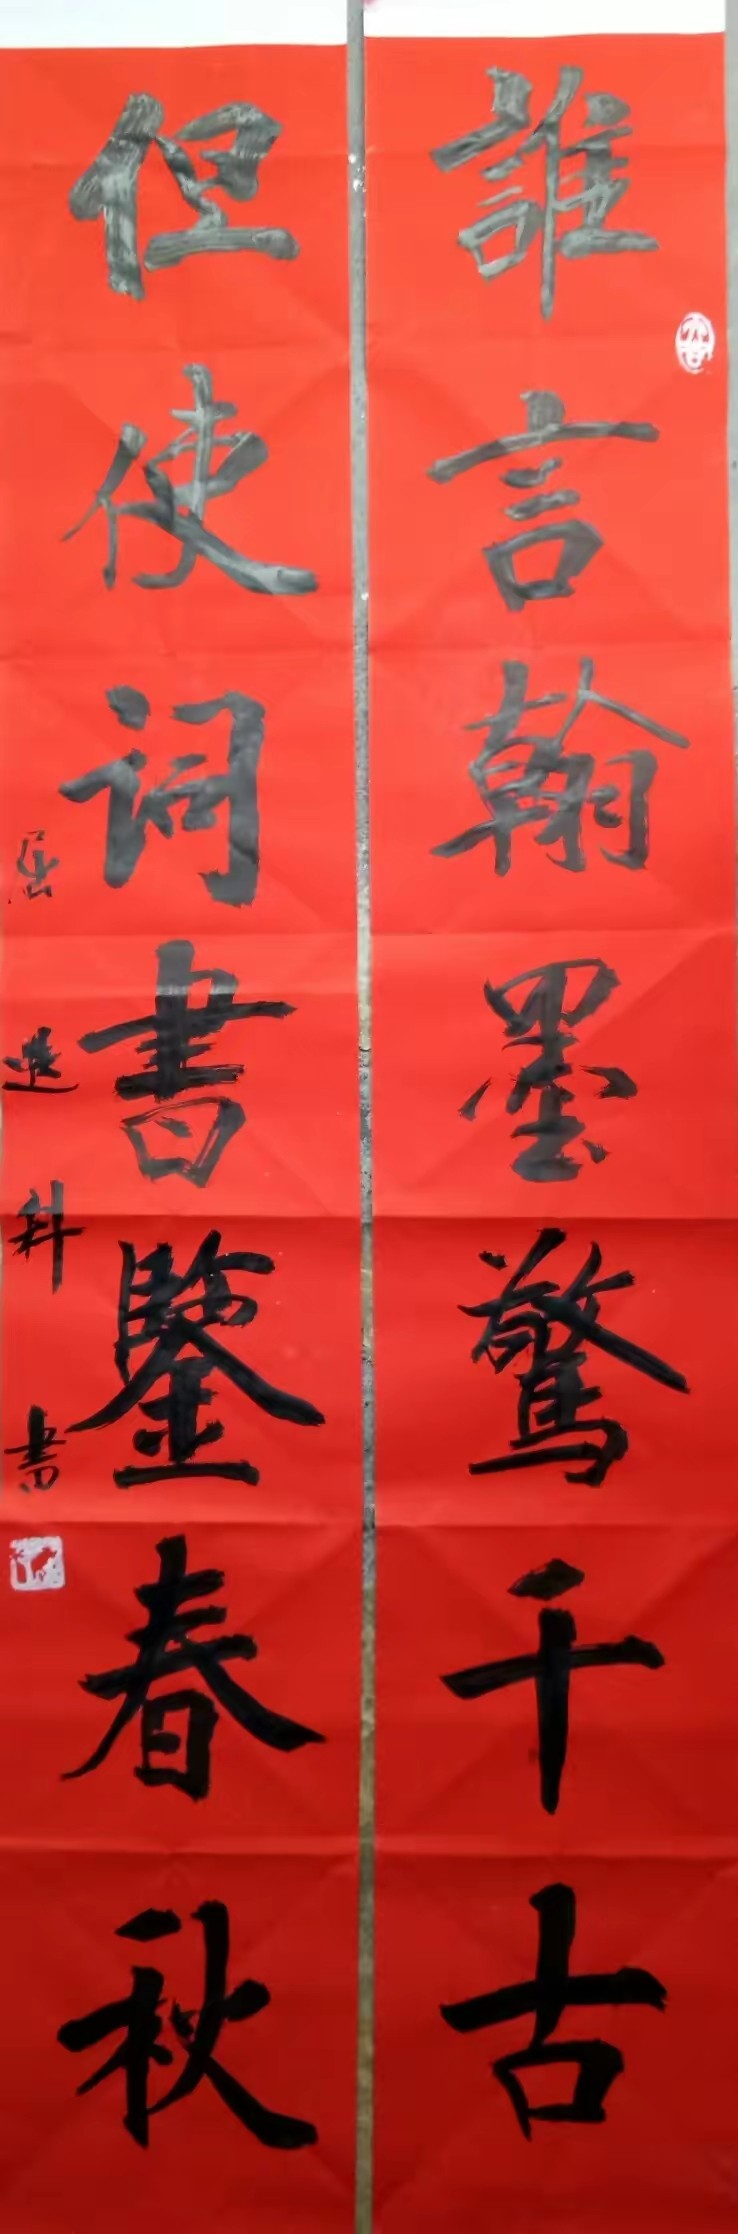 誰言翰墨驚千古
但使詞書鑒春秋
屈进科書